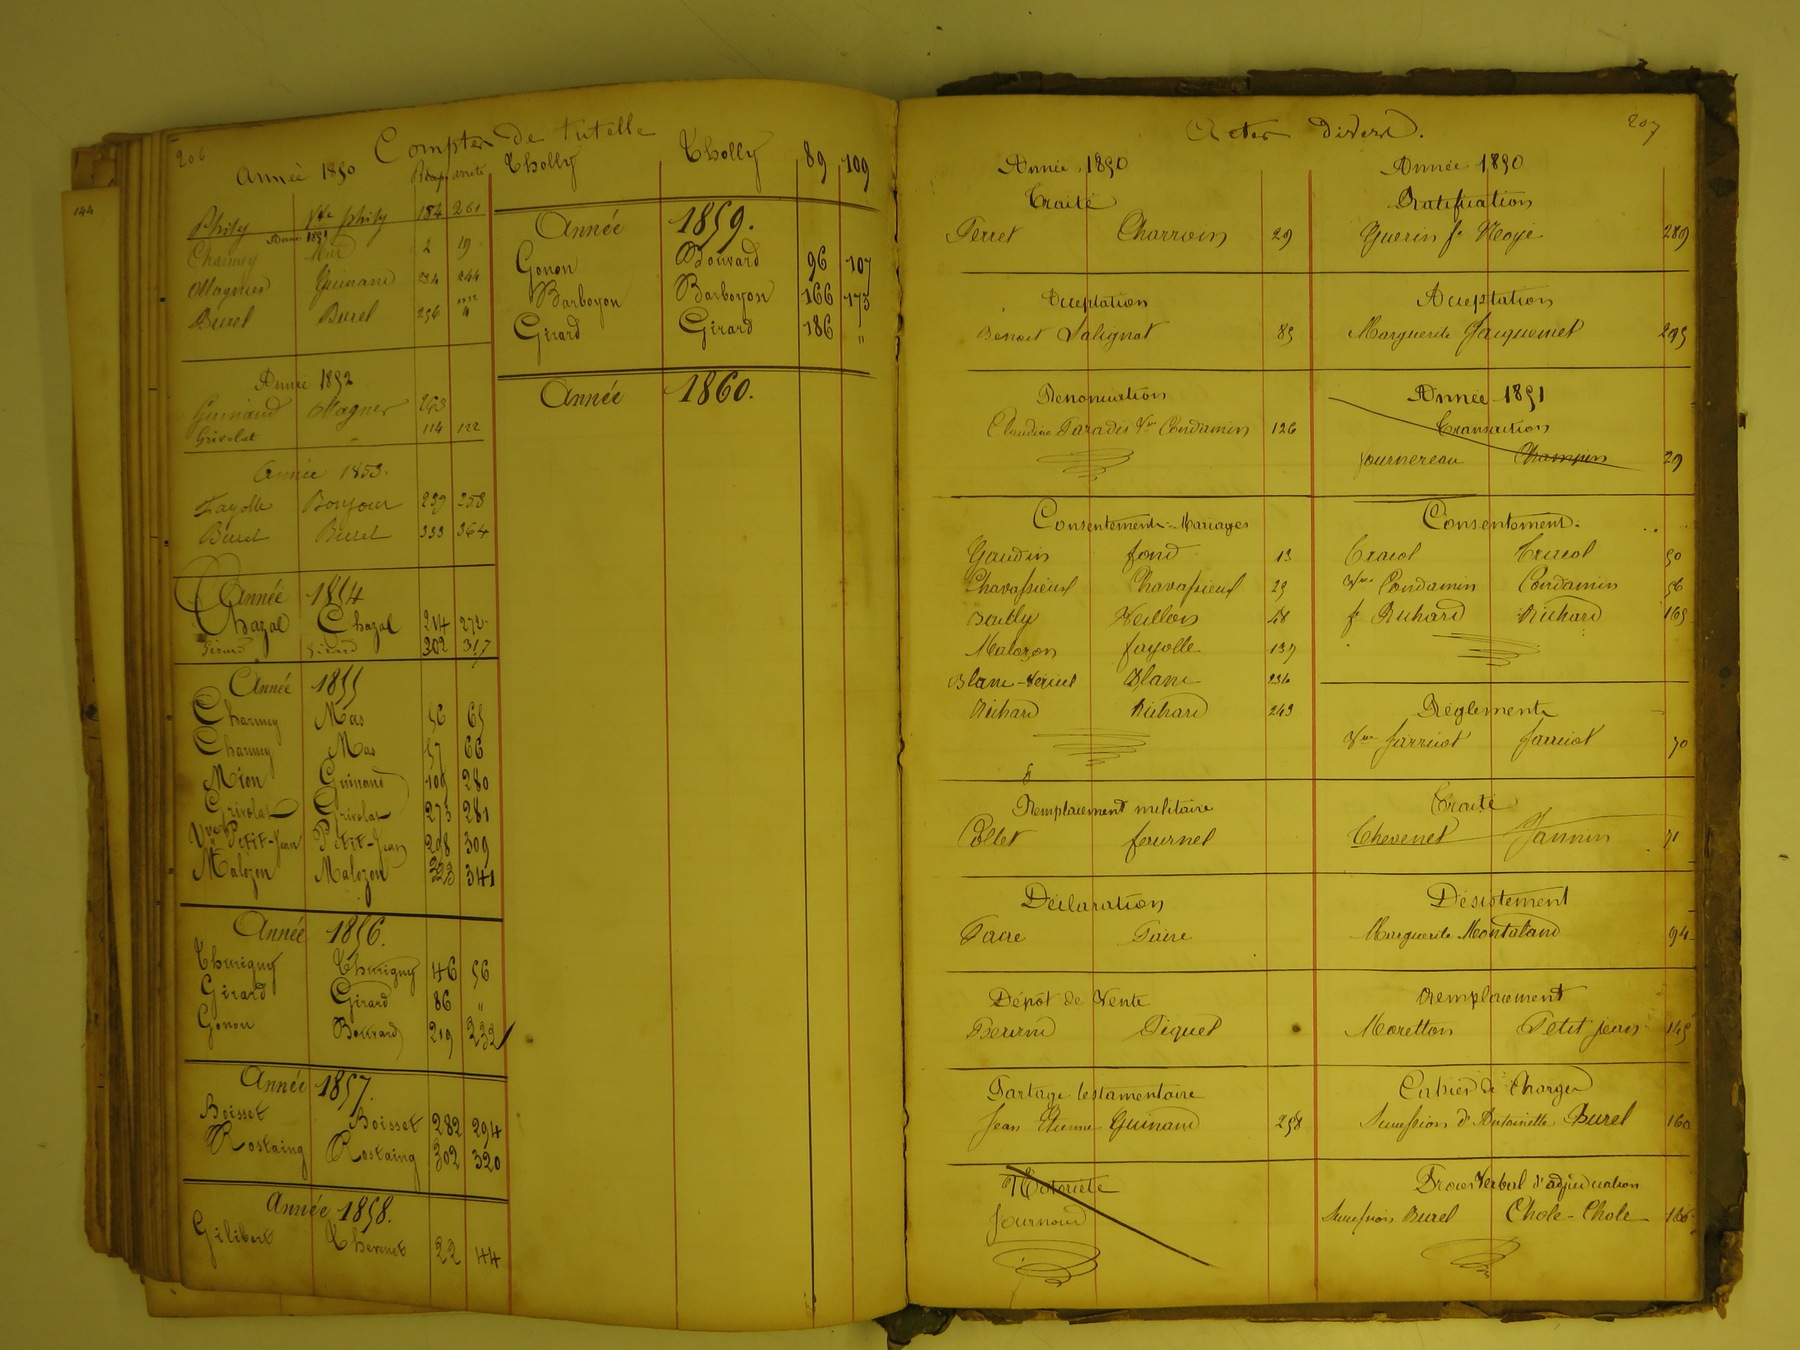 144
206
Comptes de tutelle
Année 1850
arrêté
Phily Vve Phily 184 261
Année 1851
Charmey Mas 2 19
Magnier Guinand 234 244
Burel Burel 256 "
Année 1852
Guinand Magnier 263
Grivolat 114 122
Année 1853.
Fayolle Bonjour 239 258
Burel Burel 333 364
Année 1854
Chazal Chazal 214 272
Girard Girard 302 317
Année 1855
Charmey Mas 56 65
Charmey Mas 57 66
Mion Guinand 109 280
Grivolat Grivolat 273 281
Vve Petit-Jean Petit-Jean 298 309
Malozon Malozon 323 341
Année 1856.
Thurigny Thurigny 46 56
Girard Girard 86 "
Gonon Bouvard 219 232
Année 1857.
Boisset Boisset 282 294
Rostaing Rostaing 302 320
Année 1858.
Gilibert Thevenet 22 44
Tholly Tholly 89 109
Année 1859.
Gonon Bouvard 96 107
Barboyon Barboyon 166 173
Girard Girard 186 "
Année 1860.
207
Actes divers.
Année 1850
Traité
Perret Charvoin 29
Acceptation
Benoit Salignat 85
Renonciation
Claudine Paradis Vve Condamin 126
Consentements Mariages
Gaudin fond 13
Chavassieux Chavassieux 25
Bailly Veillon 48
Malozon fayolle 137
Blanc-Vericel Blanc 236
Richard Richard 243
Remplacement militaire
Collet fournel
Déclaration
Faure Faure
Dépôt de Vente
Piquet
Partage testamentaire
Jean Etienne Guinand 258
Notoriété
Journoud
Année 1850
Ratification
Guerin fe Noyé 289
Acceptation
Marguerite Jacquemet 295
Année 1851
Transaction
Journereau Champin 29
Consentement.
Cracol Cracol 50
Vve Condamin Condamin 56
fe Richard Richard 165
Règlement
Vve Jarricot Jarricot 70
Traité
Chevenet Jannin 71
Désistement
Marguerite Montaland 94
Remplacement
Moretton Petit jean 145
Cahier de Charges
Succession d'Antoinette Burel 160
Procès Verbal d'adjudication
Succession Burel Chole-Chole 166